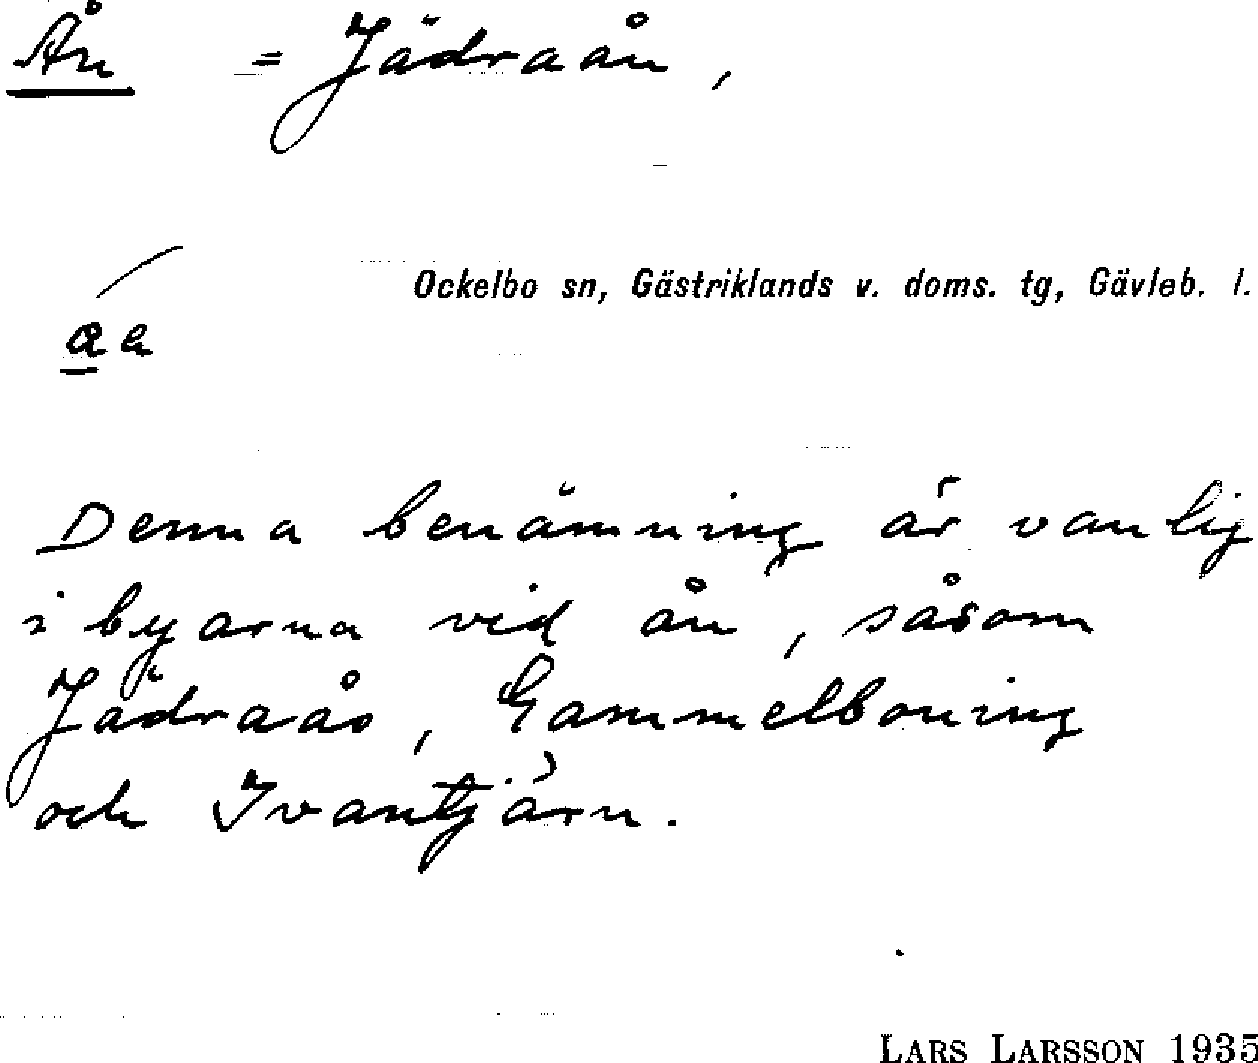 Ån = Jädraån,
Ockelbo sn, Gästriklands v. doms. tg, Gävleb. l.
Denna benämning är vanlig
i byarna vid ån, såsom
Jädraås, Gammelboning
och Ivantjärn.
LARS LARSSON 1935